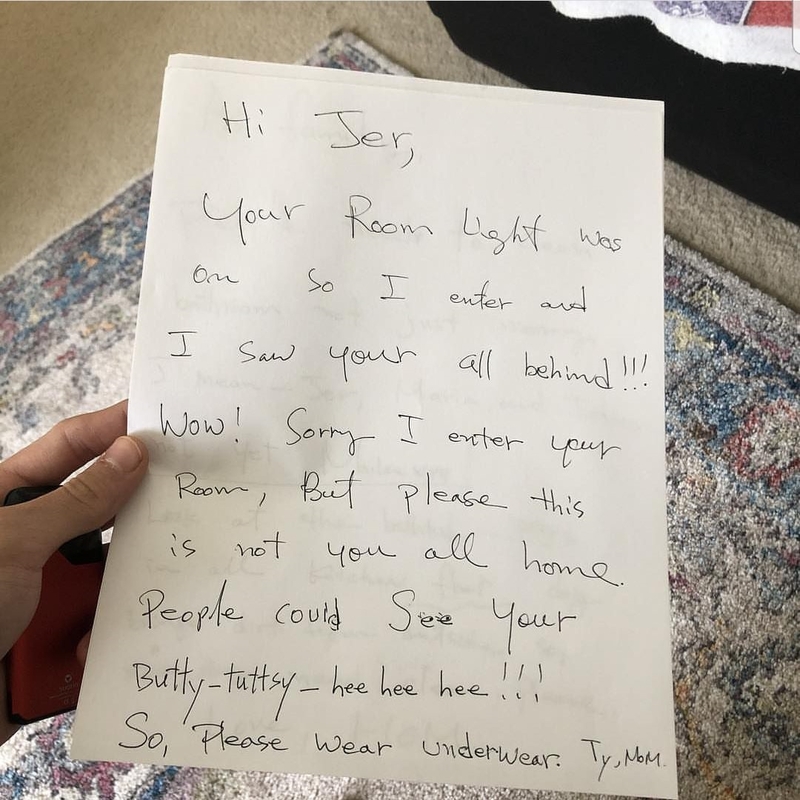 Hi Jer,
Your Room Light was
on so I enter and
I saw your all behind!!!
Wow! Sorry I enter your
Room, But please this
is not you all home.
People could See Your
Butty-tuttsy-hee hee hee!!!
So, Please wear underwear. Ty, MOM.